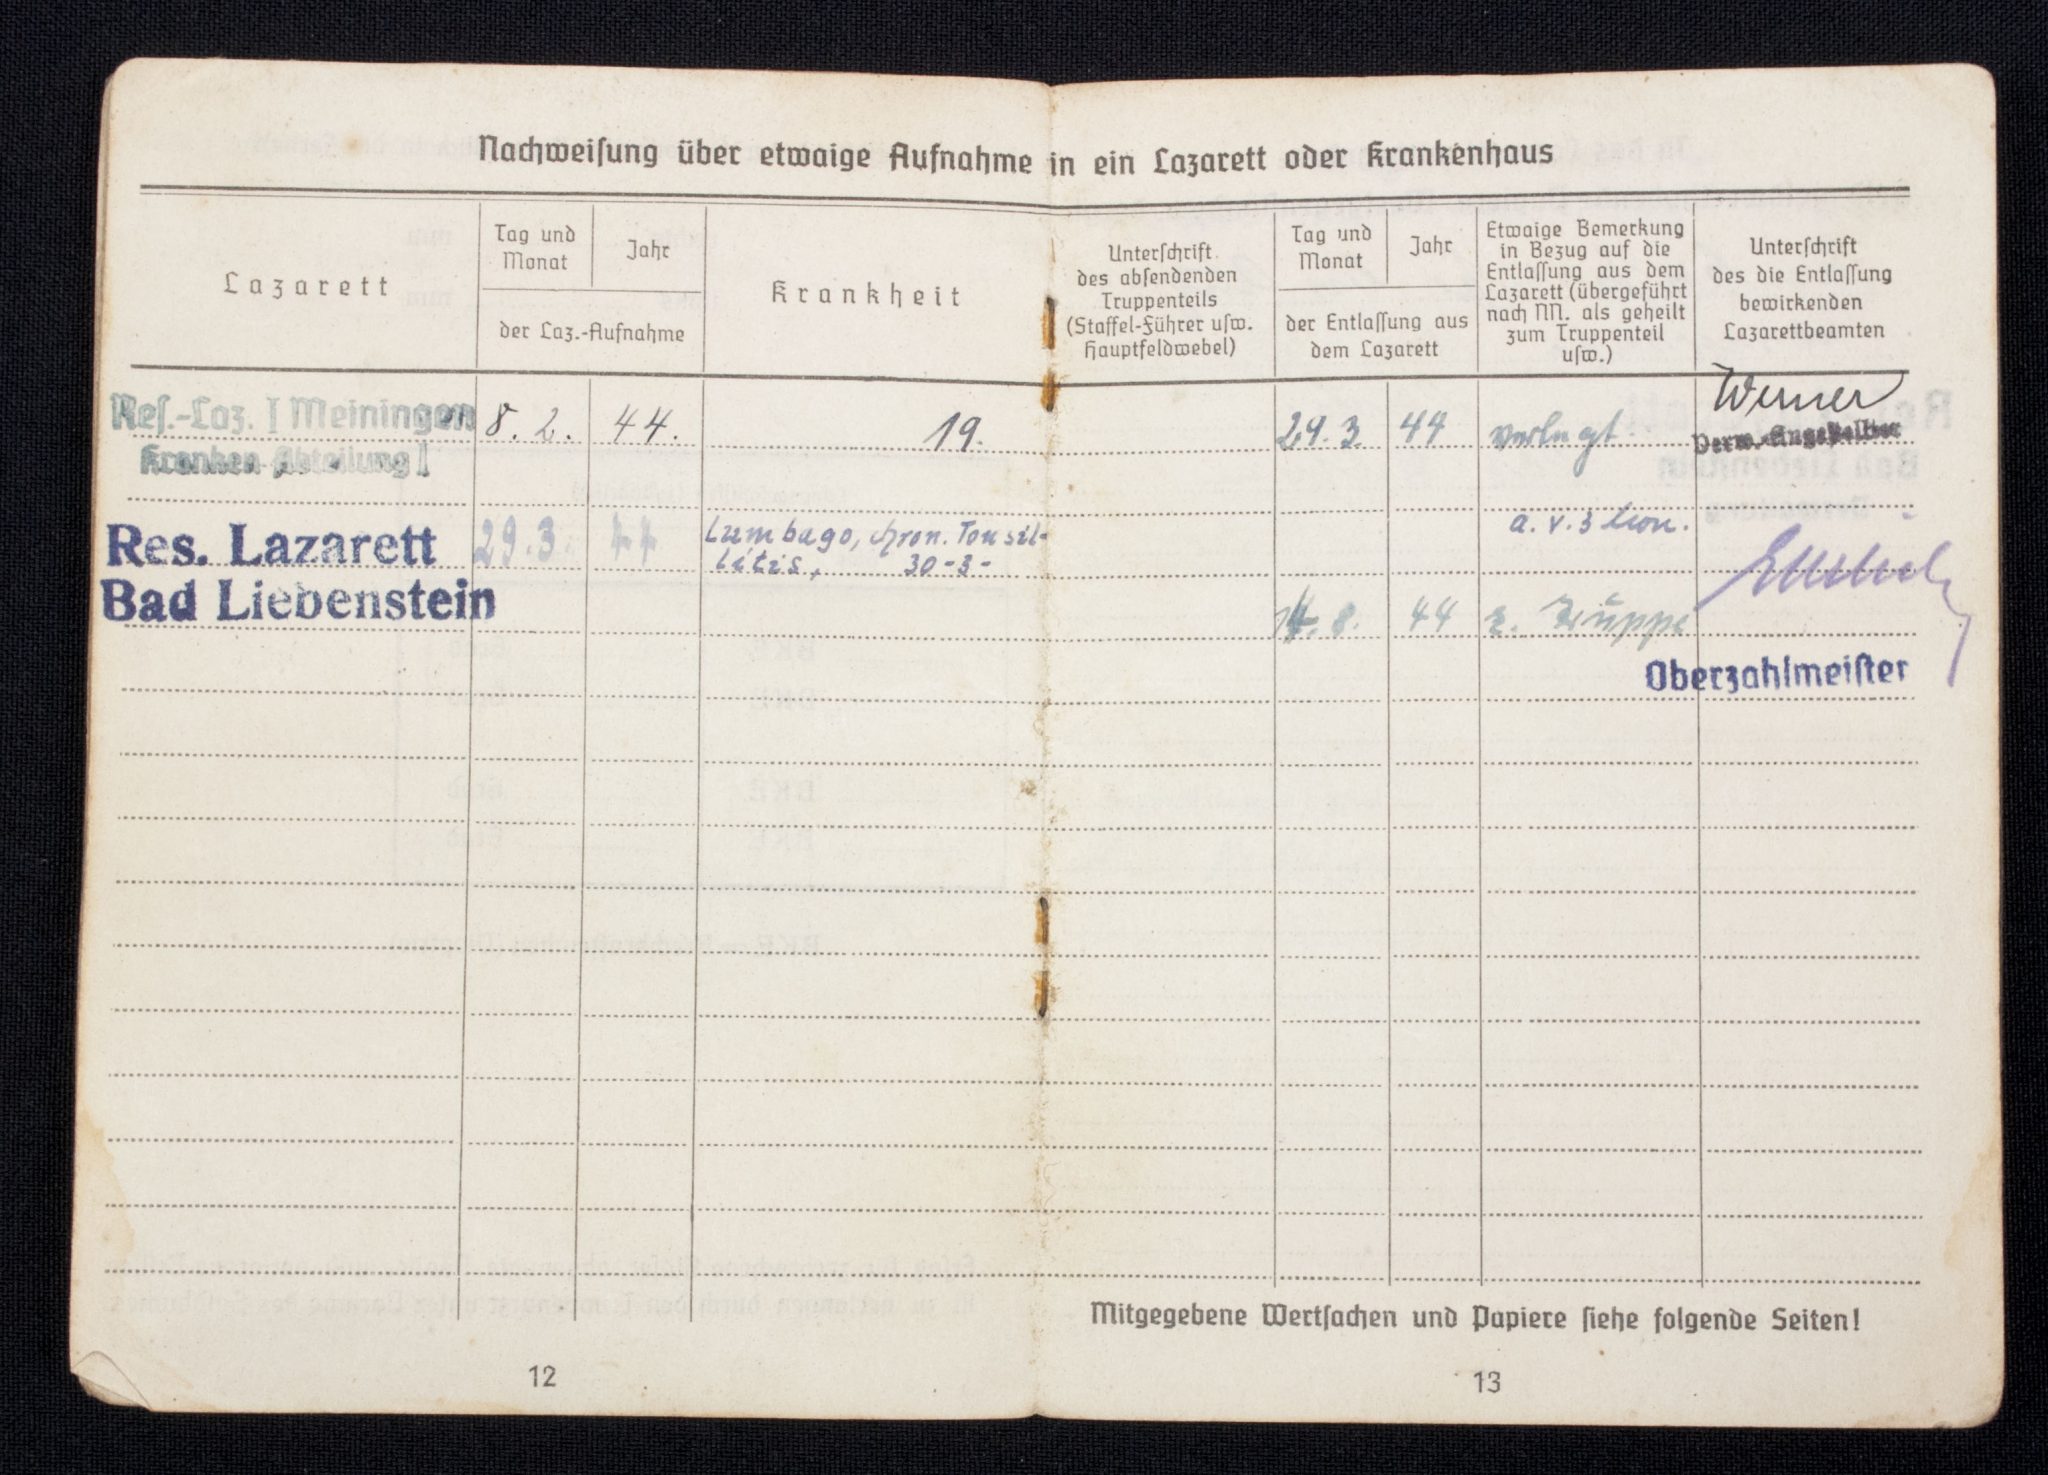 Nachweisung über etwaige Aufnahme in ein Lazarett oder Krankenhaus
Lazarett
Tag und
Monat
Jahr
der Laz.-Aufnahme
Krankheit
Unterschrift
des absendenden
Truppenteils
(Staffel-Führer usw.
Hauptfeldwebel)
Tag und
Monat
Jahr
der Entlassung aus
dem Lazarett
Etwaige Bemerkung
in Bezug auf die
Entlassung aus dem
Lazarett (übergeführt
nach NN. als geheilt
zum Truppenteil
usw.)
Unterschrift
des die Entlassung
bewirkenden
Lazarettbeamten
Res.-Laz. I Meiningen 8. 2. 44. 19. 29. 3. 44 verlegt Werner
Kranken-Abteilung I Verw.-Angestellter
Res. Lazarett 29. 3. 44 Lumbago, chron. Tonsil- a. v. 3 Mon.
litis, 30-3-
Bad Liebenstein 8. 44 z. Truppe
Oberzahlmeister
Mitgegebene Wertsachen und Papiere siehe folgende Seiten!
12
13